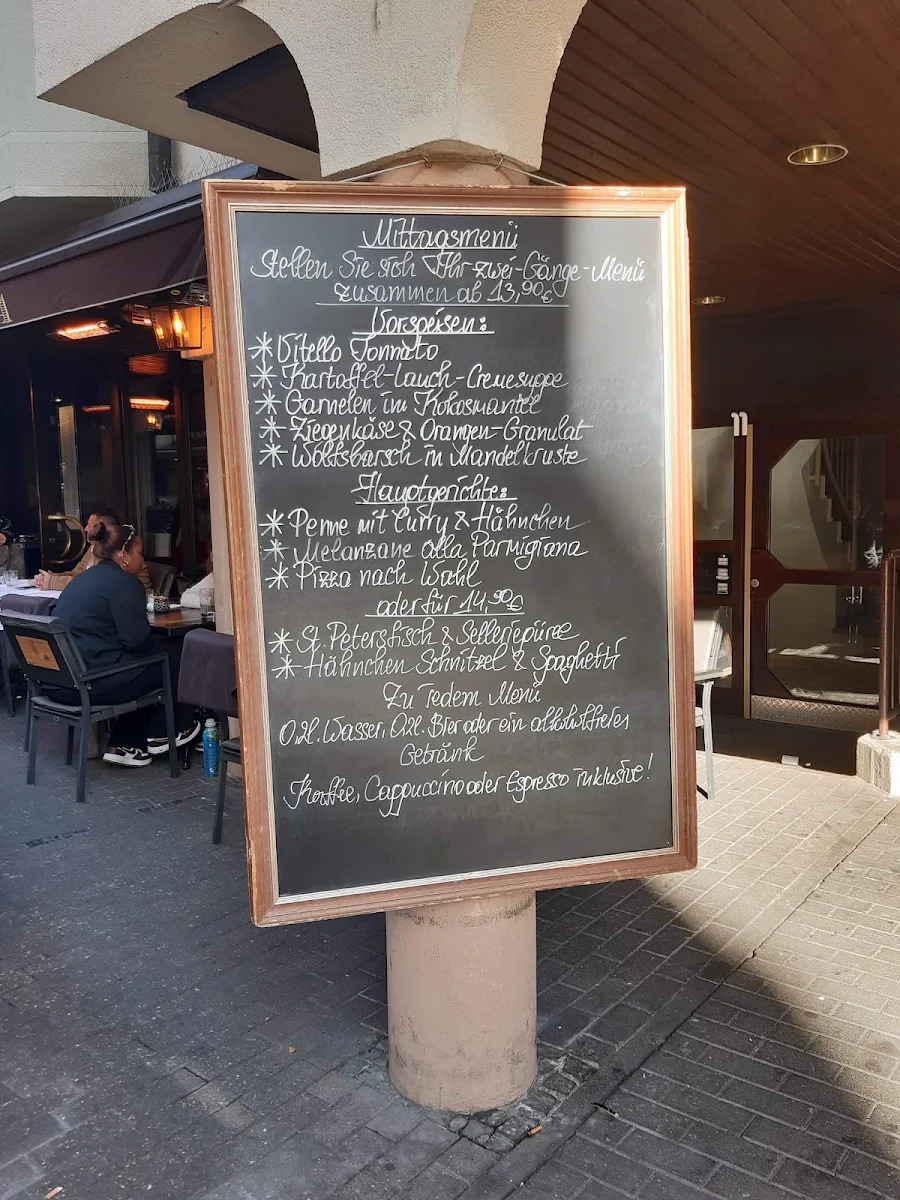 Mittagsmenü
Stellen Sie sich Ihr zwei-Gänge-Menü
zusammen ab 13,90€
Vorspeisen:
* Vitello Tonnato
* Kartoffel-Lauch-Cremesuppe
* Garnelen im Kokosmantel
* Ziegenkäse & Orangen-Granulat
* Wolfsbarsch in Mandelkruste
Hauptgerichte:
* Penne mit Curry & Hähnchen
* Melanzane alla Parmigiana
* Pizza nach Wahl
oder für 14,90€
* St. Petersfisch & Selleriepüree
* Hähnchen Schnitzel & Spaghetti
Zu Jedem Menü
0,2l. Wasser, 0,2l. Bier oder ein alkoholfreies
Getränk
Kaffee, Cappuccino oder Espresso inklusive!